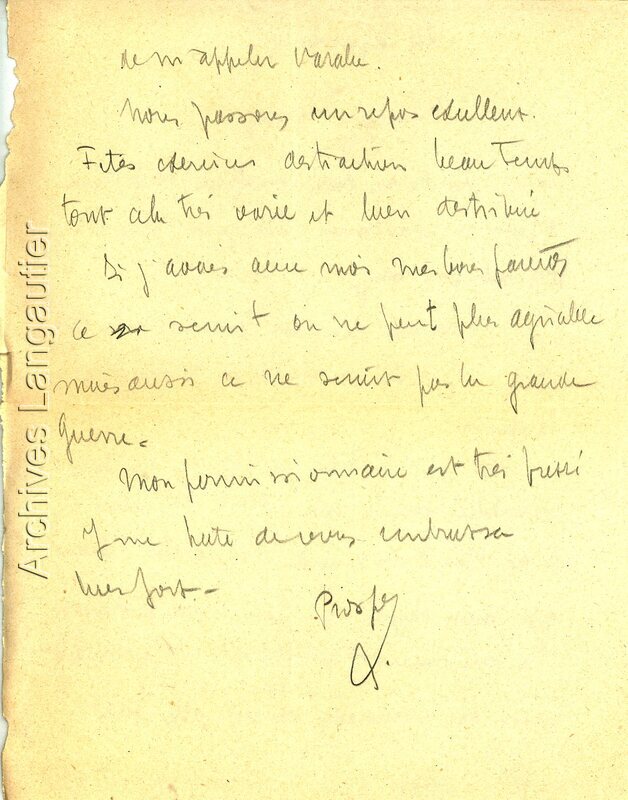 de m'appeler
Nous passons un repos excellent.
Fetes exercices distractions beau temps
tout cela très varié et bien distribué
Si j'avais avec moi mes bons parents
ce serait on ne peut plus agréable
mais aussi ce ne serait pas la grande
Guerre.
Mon permissionnaire est très pressé
Je me hate de vous embrasser
bien fort.
Prosper
Archives Langautier